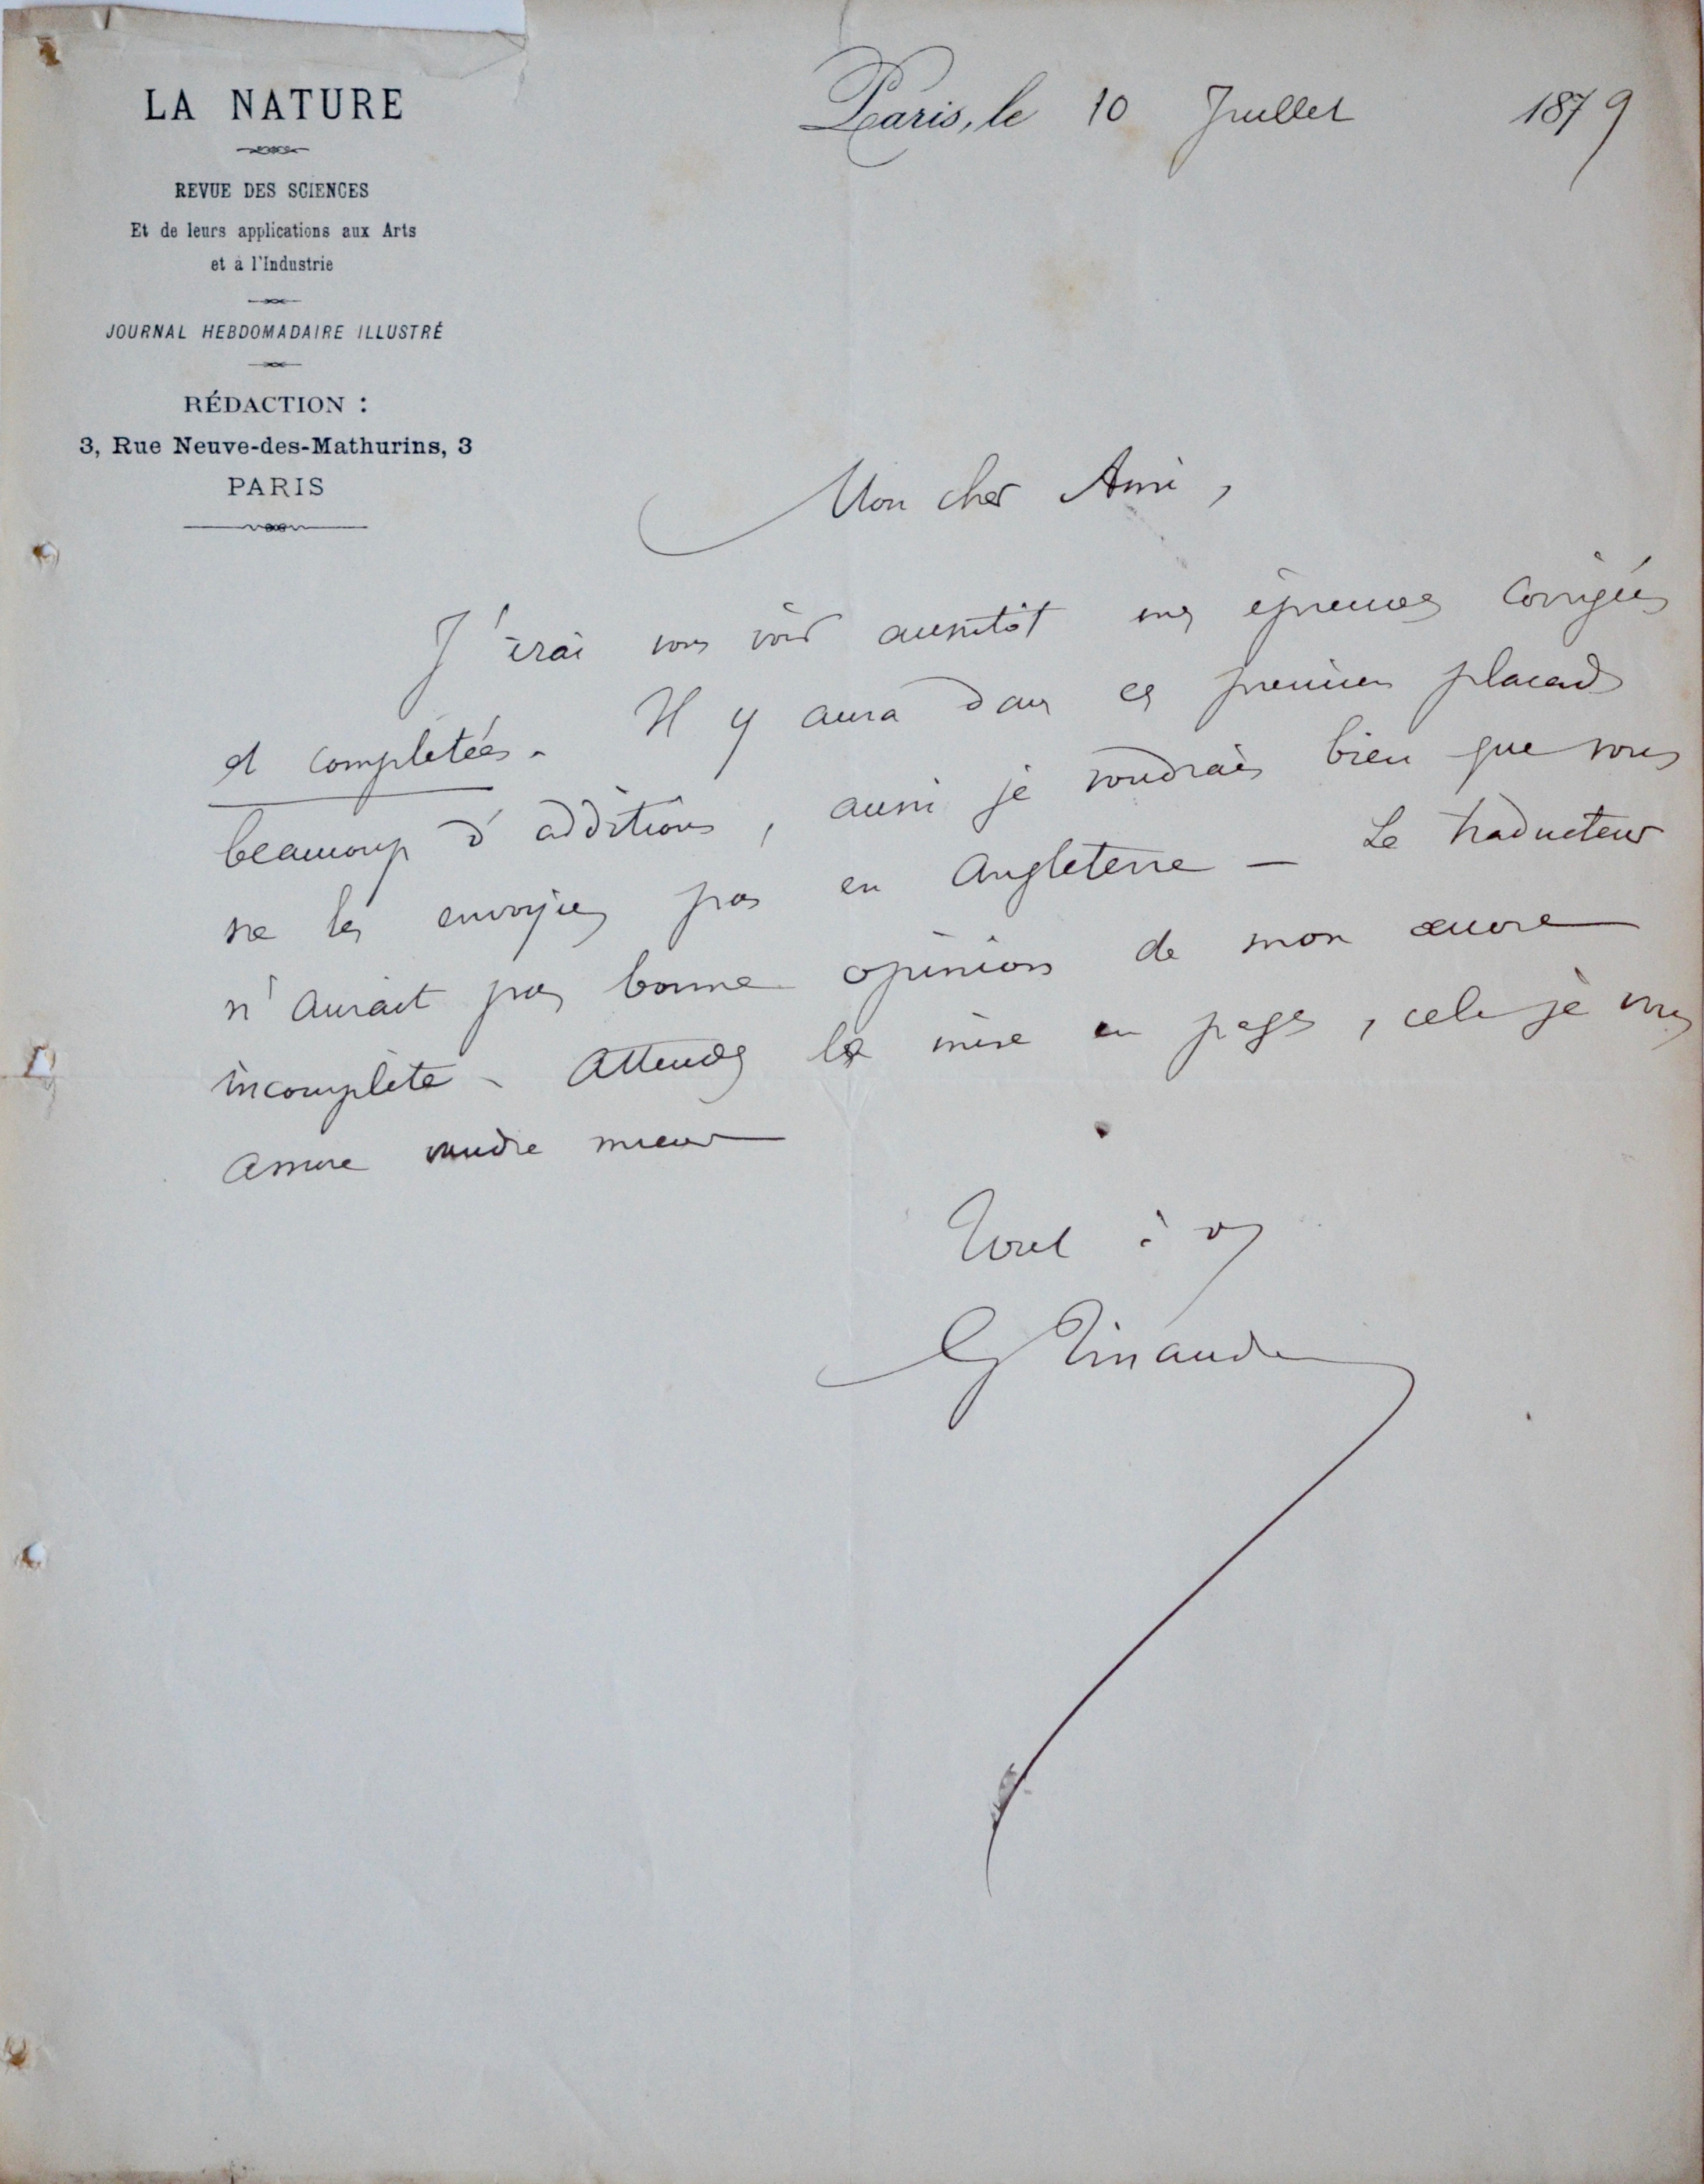 LA NATURE
REVUE DES SCIENCES
Et de leurs applications aux Arts
et à l'Industrie
JOURNAL HEBDOMADAIRE ILLUSTRÉ
RÉDACTION :
3, Rue Neuve-des-Mathurins, 3
PARIS
Paris, le 10 Juillet 1879
Mon cher Ami,
J'irai vous voir aussitôt mes épreuves corrigées
et complétées. Il y aura dans ces premiers placards
beaucoup d'additions, aussi je voudrais bien que vous
ne les envoyiez pas en Angleterre — Le traducteur
n'aurait pas bonne opinion de mon œuvre
incomplète - Attendez la mise en pages, cela je vous
assure vaudra mieux
Tout à vs
G Tissandier